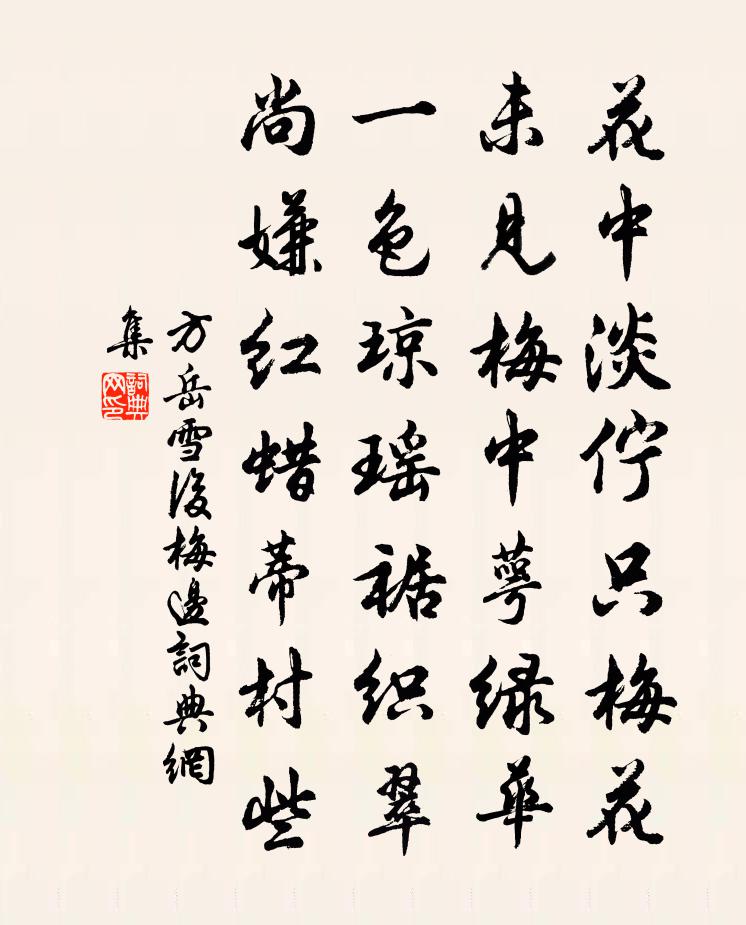 花中淡佇只梅花
未見梅中萼绿華
一色琼瑶裾织翠
尚嫌红蜡蒂村些
方岳雪後梅邊詞典網
集
詞典
网印